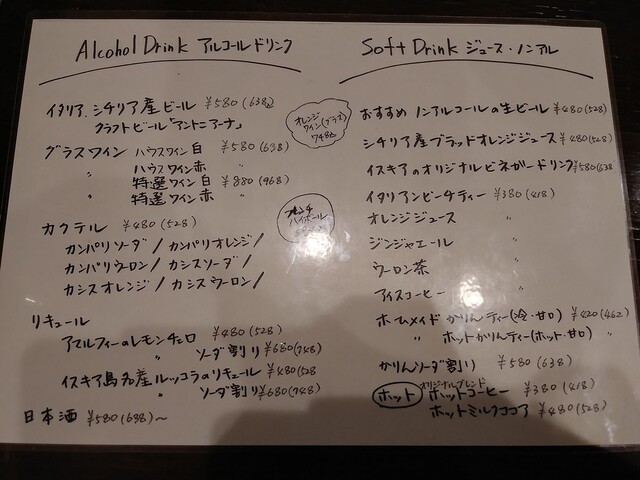 Alcohol Drink アルコールドリンク
イタリア、シチリア産ビール ¥580(638)
クラフトビール「アントニアーナ」
オレンジ
ワイン(グラス)
グラスワイン ハウスワイン白 ¥580(638)
〃 ハウスワイン赤 〃
〃 特選ワイン白 ¥880(968)
〃 特選ワイン赤 〃
カクテル ¥480(528)
ハイボール
カンパリソーダ/カンパリオレンジ/
カンパリウーロン/カシスソーダ/
カシスオレンジ/カシスウーロン/
リキュール
アマルフィーのレモンチェロ ¥480(528)
〃 ソーダ割り ¥680(748)
イスキア島名産ルッコラのリキュール ¥480(528
〃 ソーダ割り ¥680(748)
日本酒 ¥580(638)〜
Soft Drink ジュース・ノンアル
おすすめ ノンアルコールの生ビール ¥480(528)
シチリア産ブラッドオレンジジュース ¥480(528)
イスキアのオリジナルビネガードリンク ¥580(638
イタリアンピーチティー ¥380(418)
オレンジジュース 〃
ジンジャエール 〃
ウーロン茶 〃
アイスコーヒー 〃
ホームメイドかりんティー(冷・甘口) ¥420(462)
〃 ホットかりんティー(ホット・甘口) 〃
かりんソーダ割り ¥580(638)
オリジナルブレンド
ホット ホットコーヒー ¥380(418)
ホットミルクココア ¥480(528)